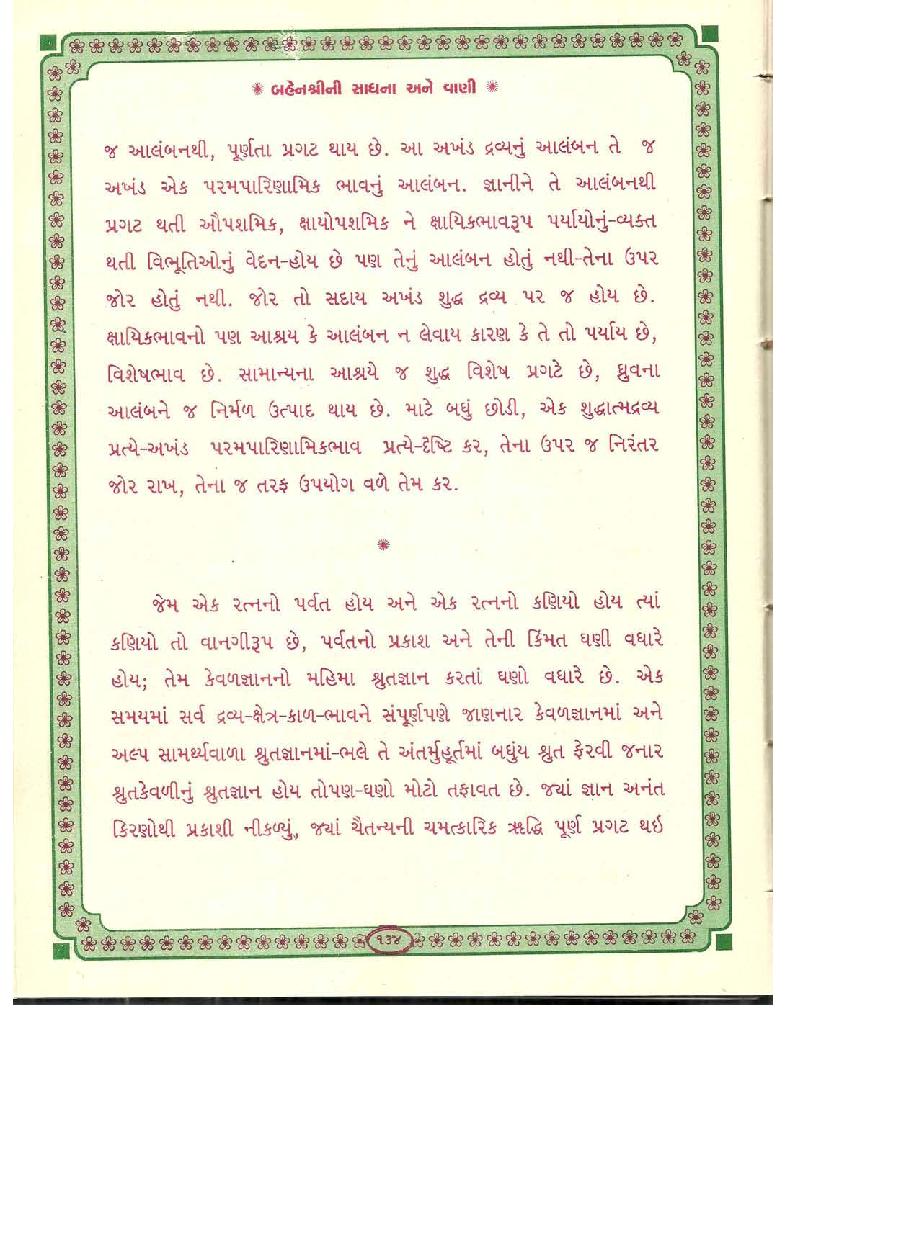 ✺ બહેનશ્રીની સાધના અને વાણી ✺
જ આલંબનથી, પૂર્ણતા પ્રગટ થાય છે. આ અખંડ દ્રવ્યનું આલંબન તે જ
અખંડ એક પરમપારિણામિક ભાવનું આલંબન. જ્ઞાનીને તે આલંબનથી
પ્રગટ થતી ઔપશમિક, ક્ષાયોપશમિક ને ક્ષાયિકભાવરૂપ પર્યાયોનું-વ્યક્ત
થતી વિભૂતિઓનું વેદન-હોય છે પણ તેનું આલંબન હોતું નથી-તેના ઉપર
જોર હોતું નથી. જોર તો સદાય અખંડ શુદ્ધ દ્રવ્ય પર જ હોય છે.
ક્ષાયિકભાવનો પણ આશ્રય કે આલંબન ન લેવાય કારણ કે તે તો પર્યાય છે,
વિશેષભાવ છે. સામાન્યના આશ્રયે જ શુદ્ધ વિશેષ પ્રગટે છે, ધ્રુવના
આલંબને જ નિર્મળ ઉત્પાદ થાય છે. માટે બધું છોડી, એક શુદ્ધાત્મદ્રવ્ય
પ્રત્યે-અખંડ પરમપારિણામિકભાવ પ્રત્યે-દૃષ્ટિ કર, તેના ઉપર જ નિરંતર
જોર રાખ, તેના જ તરફ ઉપયોગ વળે તેમ કર.
✺
જેમ એક રત્નનો પર્વત હોય અને એક રત્નનો કણિયો હોય ત્યાં
કણિયો તો વાનગીરૂપ છે, પર્વતનો પ્રકાશ અને તેની કિંમત ઘણી વધારે
હોય; તેમ કેવળજ્ઞાનનો મહિમા શ્રુતજ્ઞાન કરતાં ઘણો વધારે છે. એક
સમયમાં સર્વ દ્રવ્ય-ક્ષેત્ર-કાળ-ભાવને સંપૂર્ણપણે જાણનાર કેવળજ્ઞાનમાં અને
અલ્પ સામર્થ્યવાળા શ્રુતજ્ઞાનમાં-ભલે તે અંતર્મુહૂર્તમાં બધુંય શ્રુત ફેરવી જનાર
શ્રુતકેવળીનું શ્રુતજ્ઞાન હોય તોપણ-ઘણો મોટો તફાવત છે. જ્યાં જ્ઞાન અનંત
કિરણોથી પ્રકાશી નીકળ્યું, જ્યાં ચૈતન્યની ચમત્કારિક ઋદ્ધિ પૂર્ણ પ્રગટ થઇ
૧૩૪